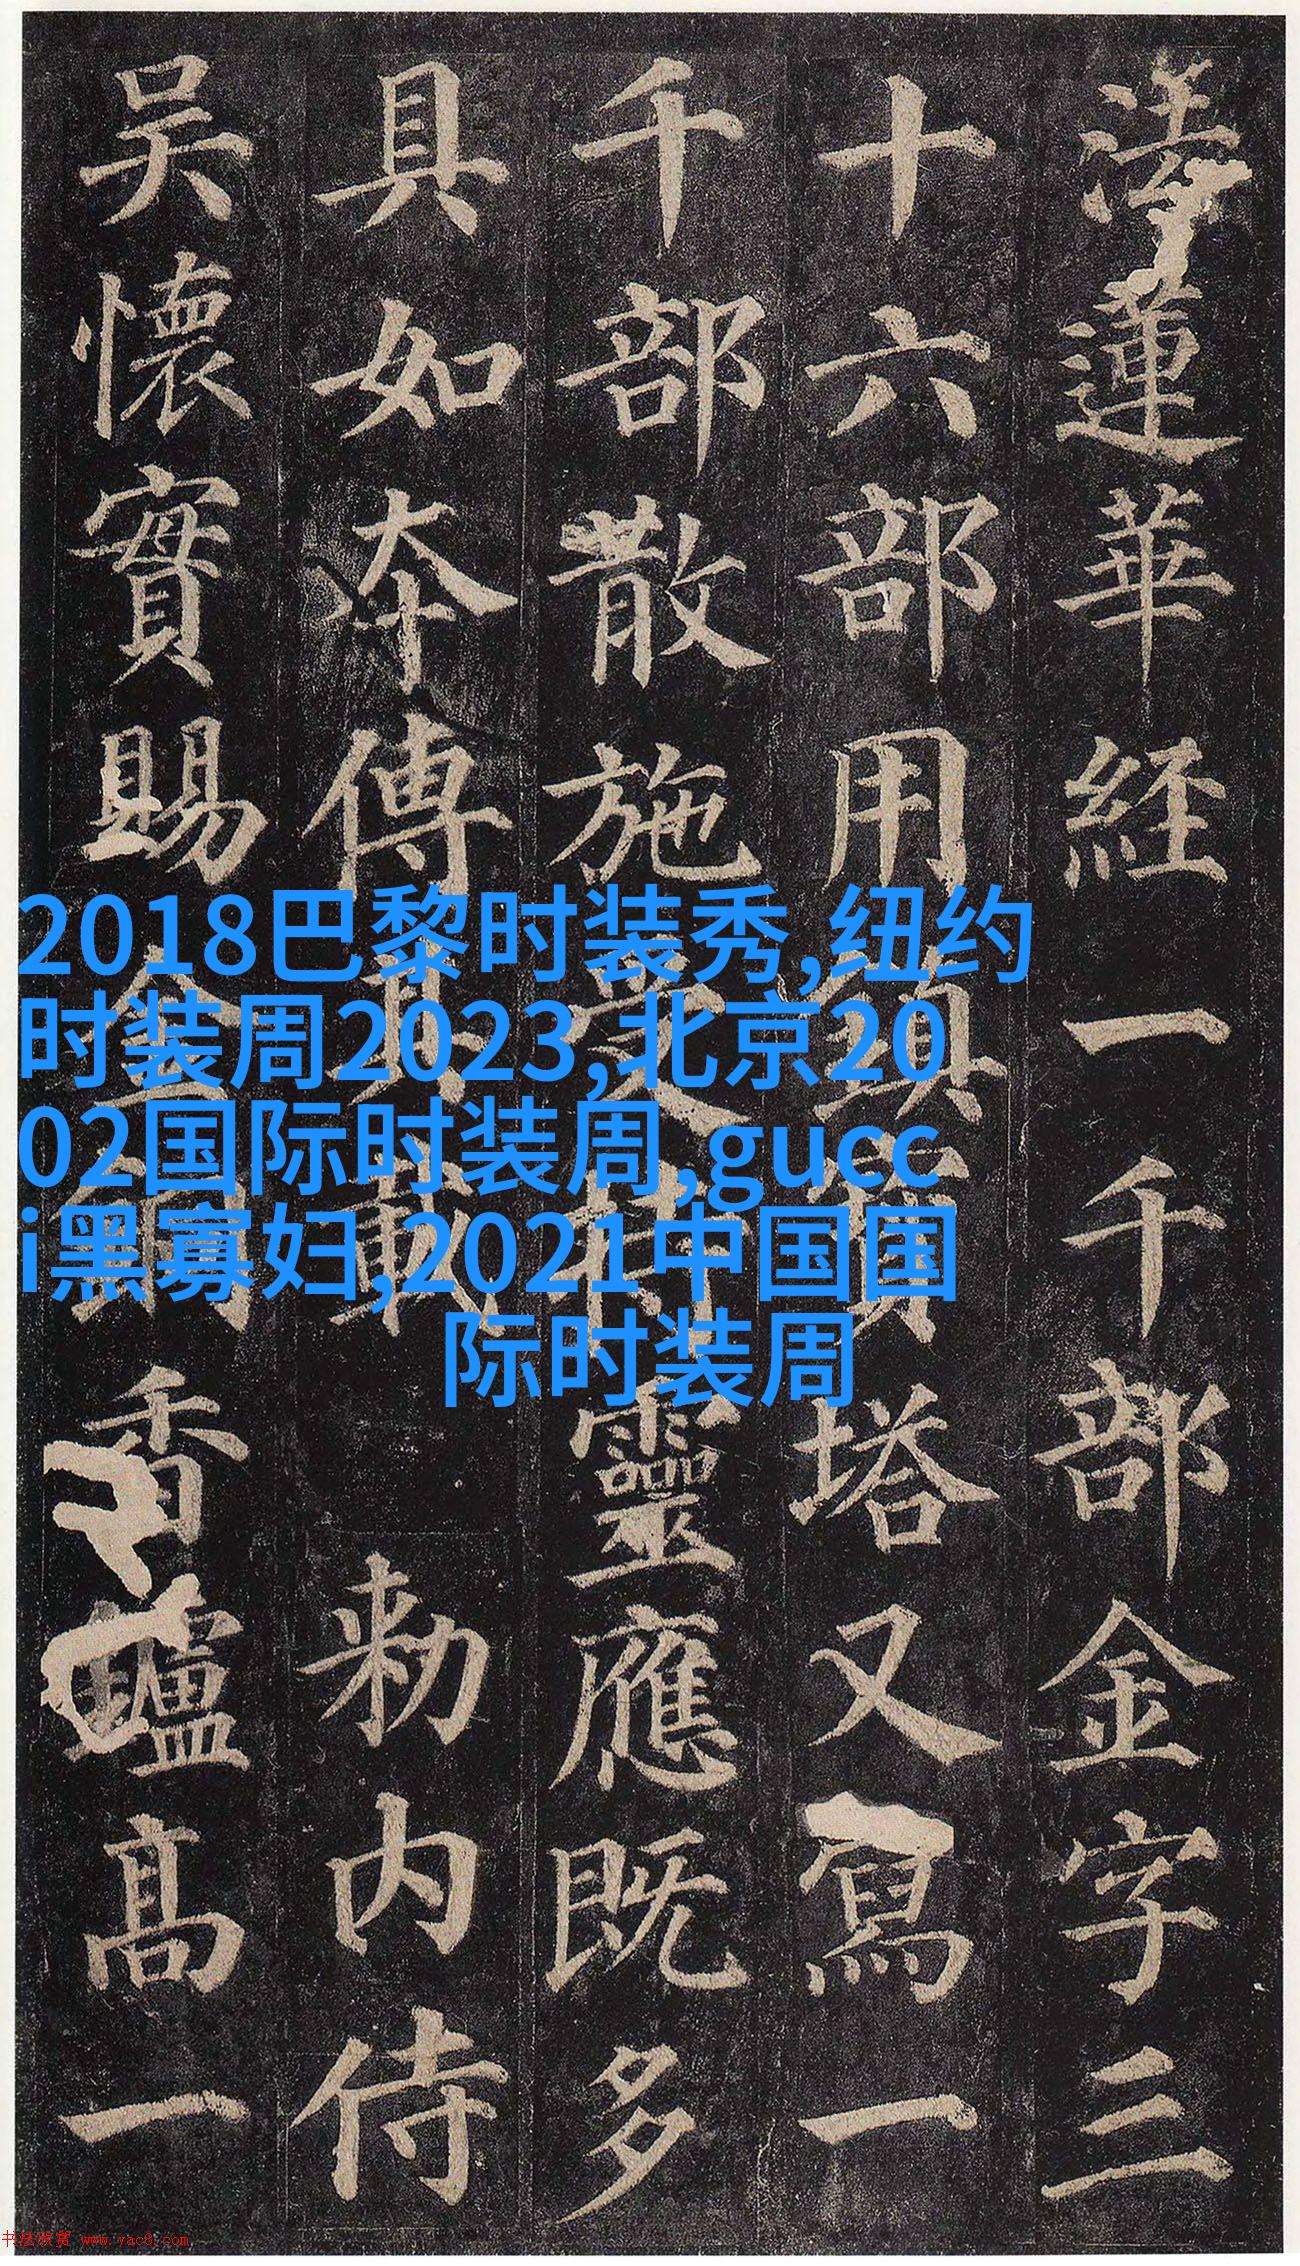 法蓮華經一千部金字三
十六部用鎮寳塔又寫一
千部散施受持靈應既多
具如本傳其載敕内侍
吳懷實賜金銅香爐高一
2018巴黎时装秀,纽约
时装周2023,北京20
02国际时装周,gucc
i黑寡妇,2021中国国
际时装周
书法欣赏 www.yac8.com